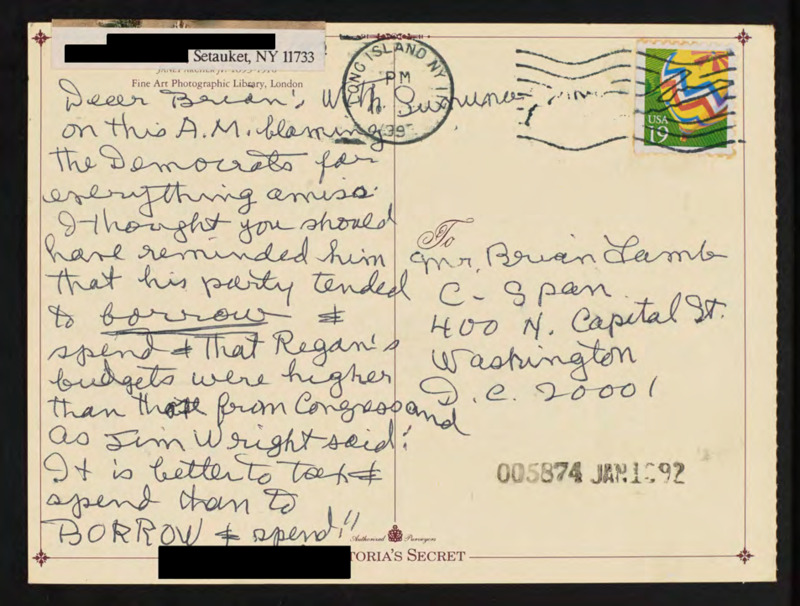 Setauket, NY 11733
Fine Art Photographic Library, London
LONG ISLAND NY
PM
USA
19
Dear Brian; With
on this A.M. blaming
the Democrats for
everything amiss.
I thought you should
have reminded him
that his party tended
to borrow &
spend & that Regan's
budgets were higher
than those from Congress and
as Jim Wright said:
It is better to tax &
spend than to
BORROW & spend!"
To
Mr. Brian Lamb
C-Span
400 N. Capital St.
Washington
D.C. 20001
005874 JAN 92
Authorized Purveyors
TORIA'S SECRET